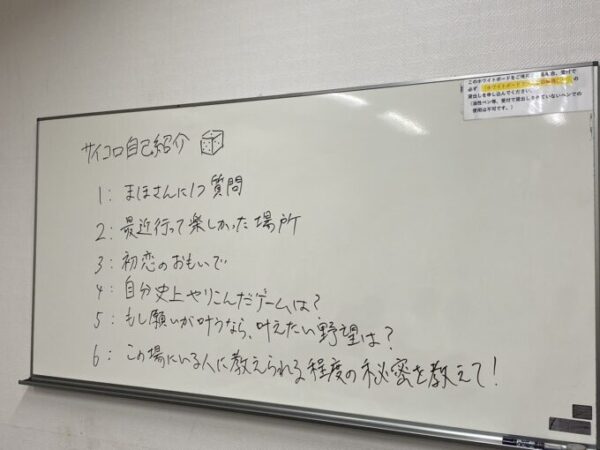 このホワイトボードをご
必ず
貸出しを申し込んでください。
(油性ペン等、受付で貸出しされていないペンでの
使用は不可です。)
サイコロ自己紹介
1: まほさんに1つ質問
2: 最近行って楽しかった場所
3: 初恋のおもいで
4: 自分史上やりこんだゲームは?
5: もし願いが叶うなら、叶えたい野望は?
6: この場にいる人に教えられる程度の秘密を教えて!